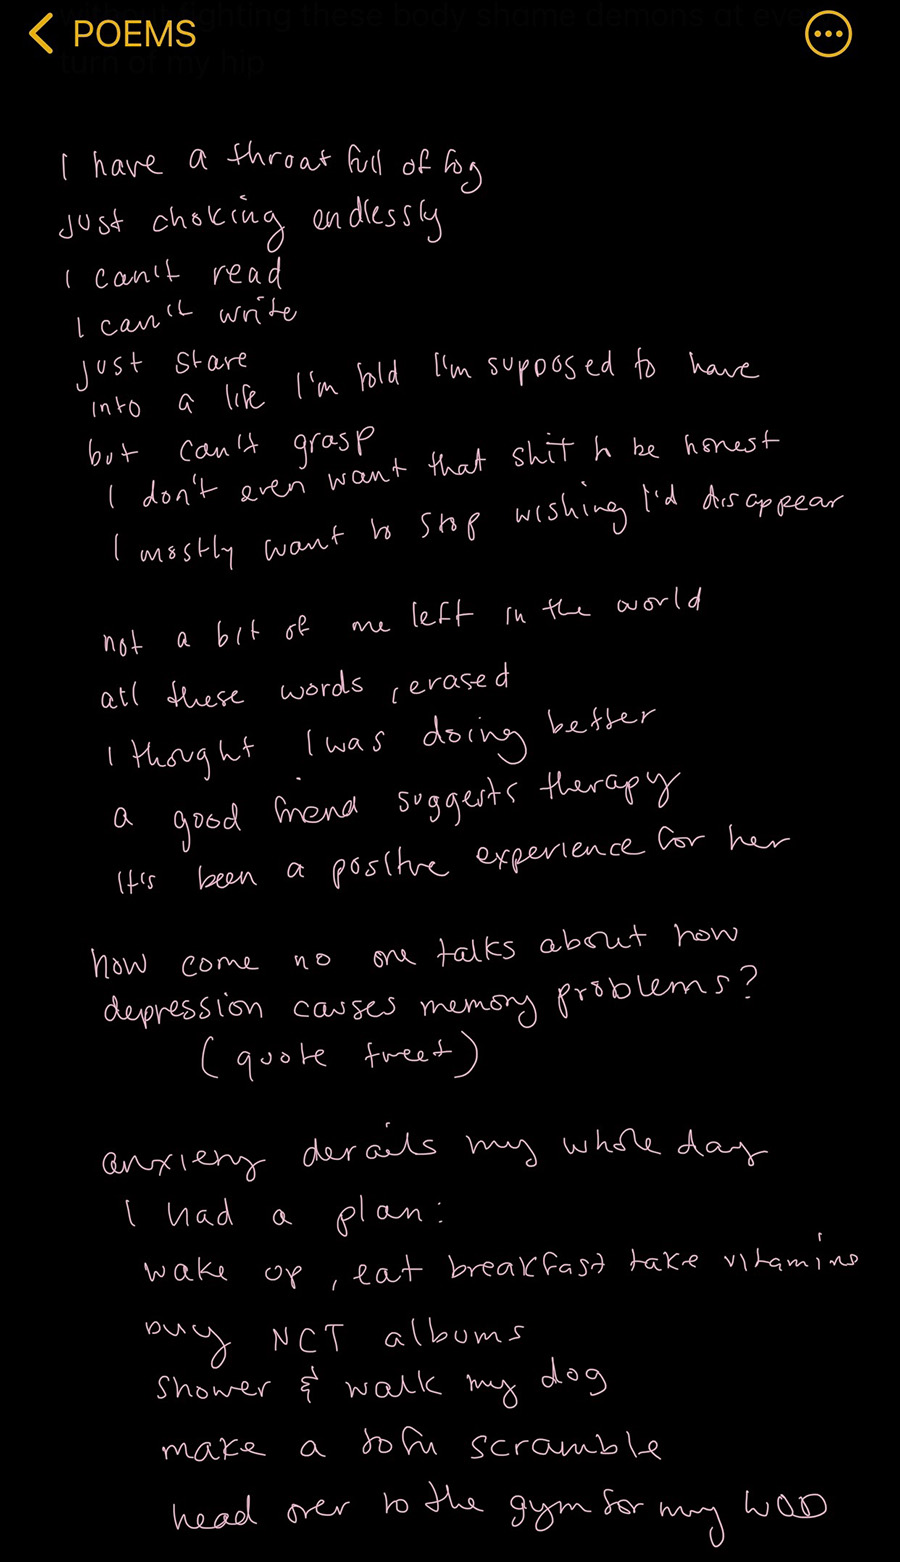 without fighting these body shame demons at eve
POEMS
turn of my hip
I have a throat full of fog
just choking endlessly
I can't read
I can't write
just stare
into a life I'm told I'm supposed to have
but can't grasp
I don't even want that shit to be honest
I mostly want to stop wishing I'd disappear
not a bit of me left in the world
all these words, erased
I thought I was doing better
a good friend suggests therapy
it's been a positive experience for her
how come no one talks about how
depression causes memory problems?
(quote tweet)
anxiety derails my whole day
I had a plan:
wake up, eat breakfast take vitamins
buy NCT albums
shower & walk my dog
make a tofu scramble
head over to the gym for my WOD